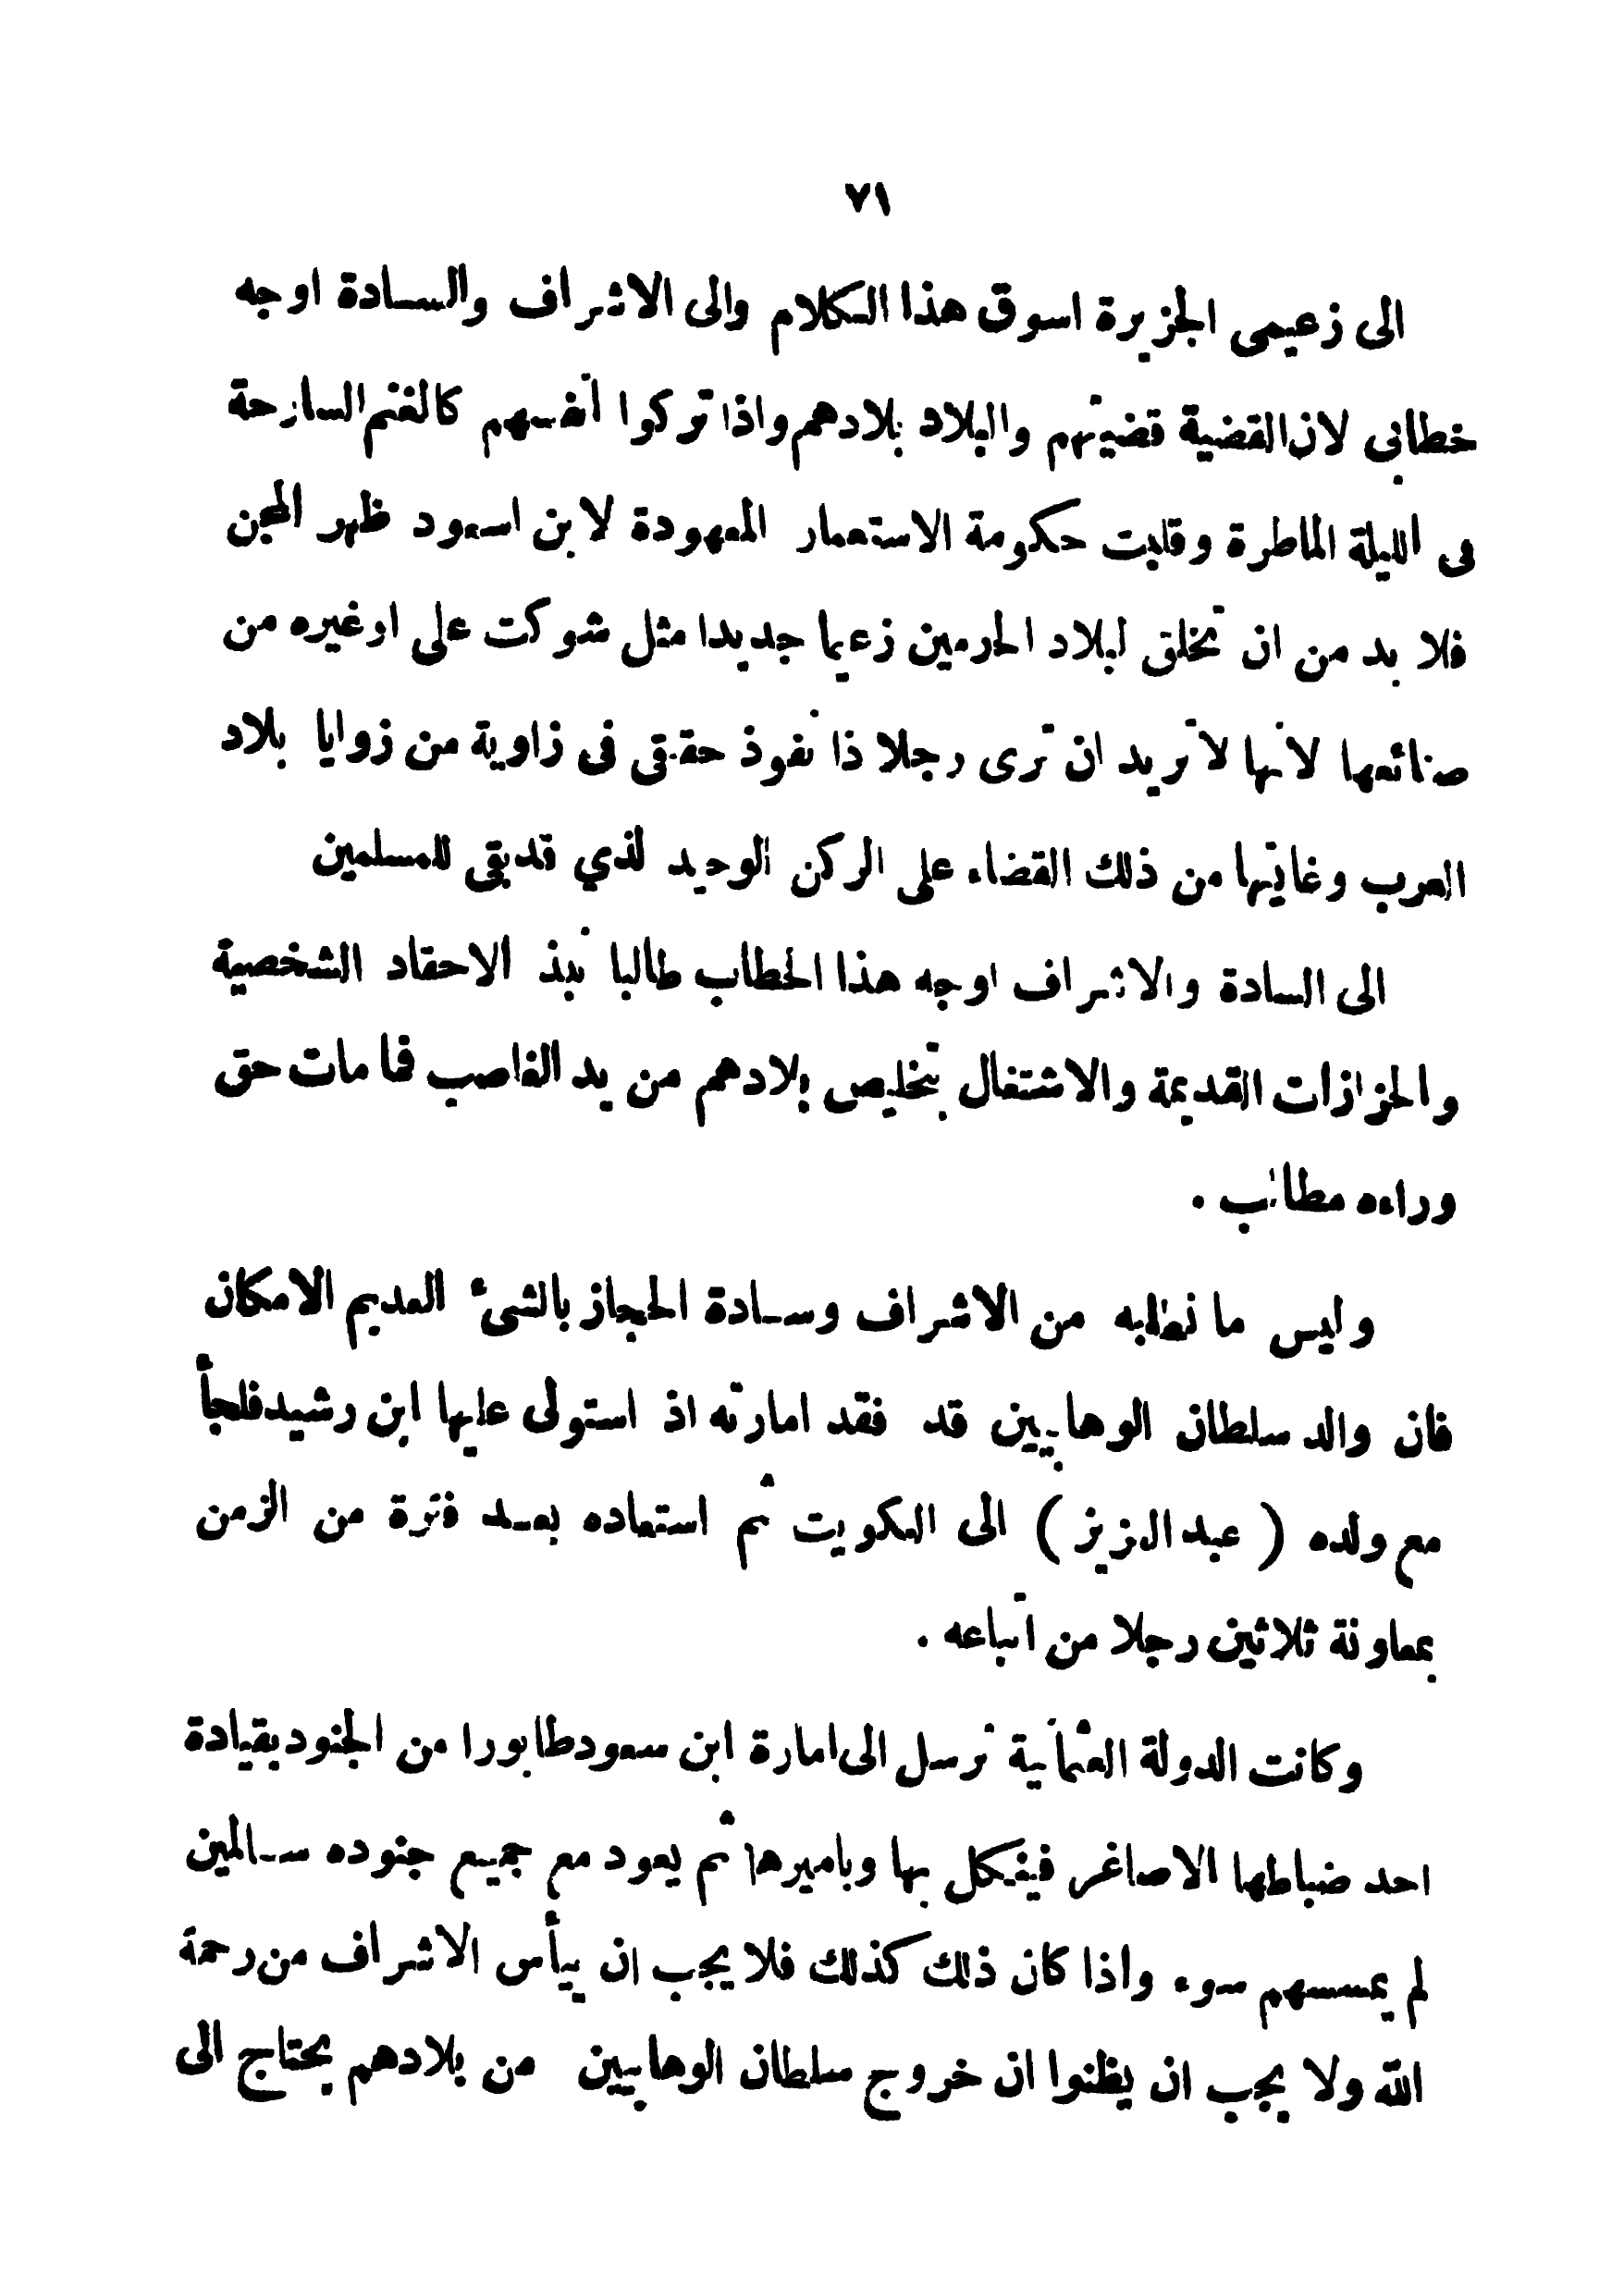 ٧١
الى زعيمى الجزيرة اسوق هذا الكلام والى الاشراف والسادة اوجه
خطابى لان القضية قضيتهم والبلاد بلادهم واذا تركوا انفسهم كالغنم السارحة
فى الليلة الماطرة وقلبت حكومة الاستعمار المعهودة لابن اسعود ظهر المجن
فلا بد من ان تخلق لبلاد الحرمين زعيما جديدا مثل شوكت على اوغيره من
صنائعها لانها لا تريد ان ترى رجلا ذا نفوذ حقيقى فى زاوية من زوايا بلاد
العرب وغايتها من ذلك القضاء على الركن الوحيد لذي قد بقى للمسلمين
الى السادة والاشراف اوجه هذا الخطاب طالبا نبذ الاحقاد الشخصية
والحزازات القديمة والاشتغال بتخليص بلادهم من يد الغاصب فما مات حق
وراءه مطالب .
وليس ما نطلبه من الاشراف وسادة الحجاز بالشىء العديم الامكان
فان والد سلطان الوهابيين قد فقد امارته اذ استولى عليها ابن رشيد فلجأ
مع ولده ( عبد العزيز ) الى الكويت ثم استعاده بعد فترة من الزمن
بمعاونة ثلاثين رجلا من اتباعه .
وكانت الدولة العثمانية ترسل الى امارة ابن سعود طابورا من الجنود بقيادة
احد ضباطها الاصاغر فينكل بها وباميرها ثم يعود مع جميع جنوده سالمين
لم يمسسهم سوء واذا كان ذلك كذلك فلا يجب ان ييأس الاشراف من رحمة
الله ولا يجب ان يظنوا ان خروج سلطان الوهابيين من بلادهم يحتاج الى